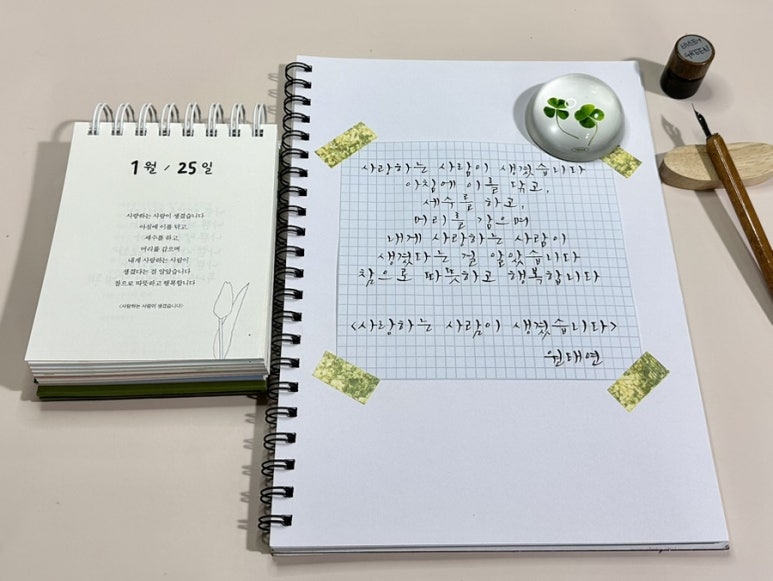 1월 / 25일
사랑하는 사람이 생겼습니다
아침에 이를 닦고,
세수를 하고,
머리를 감으며
내게 사랑하는 사람이
생겼다는 걸 알았습니다
참으로 따뜻하고 행복합니다
<사랑하는 사람이 생겼습니다>
사랑하는 사람이 생겼습니다
아침에 이를 닦고,
세수를 하고,
머리를 감으며
내게 사랑하는 사람이
생겼다는 걸 알았습니다
참으로 따뜻하고 행복합니다
<사랑하는 사람이 생겼습니다>
원태연